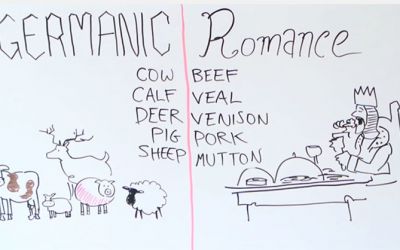 GERMANIC Romance
COW BEEF
CALF VEAL
DEER VENISON
PIG PORK
SHEEP MUTTON